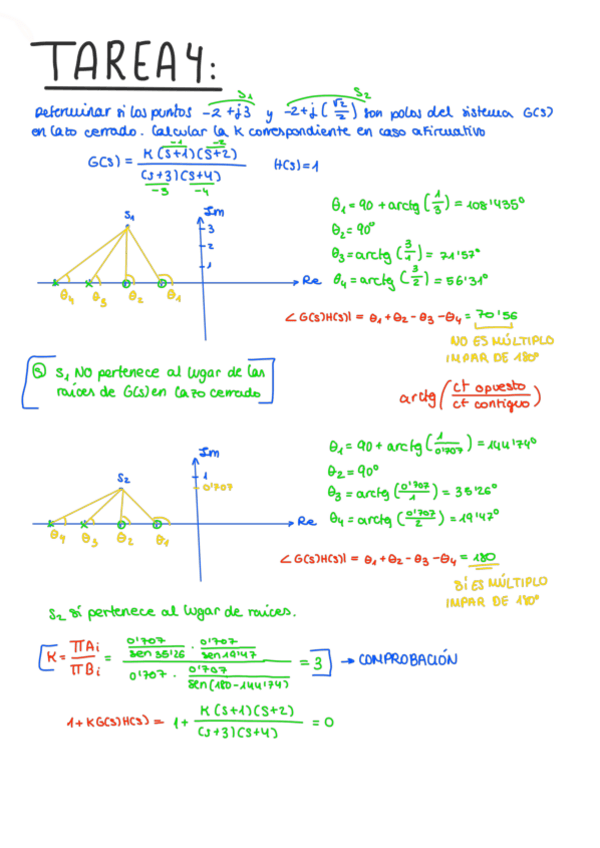 TAREA 4:
Determinar si los puntos -2+j3 y -2+j(√2/2) son polos del sistema G(s)
S1 S2
en lazo cerrado. Calcular la K correspondiente en caso afirmativo
G(s) = K(s+1)(s+2) / (s+3)(s+4) H(s)=1
-1 -2
-3 -4
θ1 = 90 + arctg (1/3) = 108'435°
θ2 = 90°
θ3 = arctg (3/1) = 71'57°
θ4 = arctg (3/2) = 56'31°
S1 Im
3
2
1
Re
θ4 θ3 θ2 θ1
∠G(s)H(s)| = θ1 + θ2 - θ3 - θ4 = 70'56
NO ES MÚLTIPLO
IMPAR DE 180°
S1 NO pertenece al lugar de las
raíces de G(s) en lazo cerrado
arctg (ct opuesto / ct contiguo)
θ1 = 90 + arctg (1/0'707) = 144'74°
θ2 = 90°
θ3 = arctg (0'707/1) = 35'26°
θ4 = arctg (0'707/2) = 19'47°
S2 Im
1
0'707
Re
θ4 θ3 θ2 θ1
∠G(s)H(s)| = θ1 + θ2 - θ3 - θ4 = 180
SÍ ES MÚLTIPLO
IMPAR DE 180°
S2 sí pertenece al lugar de raíces.
K = ΠAi / ΠBi = (0'707/sen 35'26 · 0'707/sen 19'47) / (0'707 · 0'707/sen(180-144'74)) = 3 → COMPROBACIÓN
1 + KG(s)H(s) = 1 + K(s+1)(s+2) / (s+3)(s+4) = 0